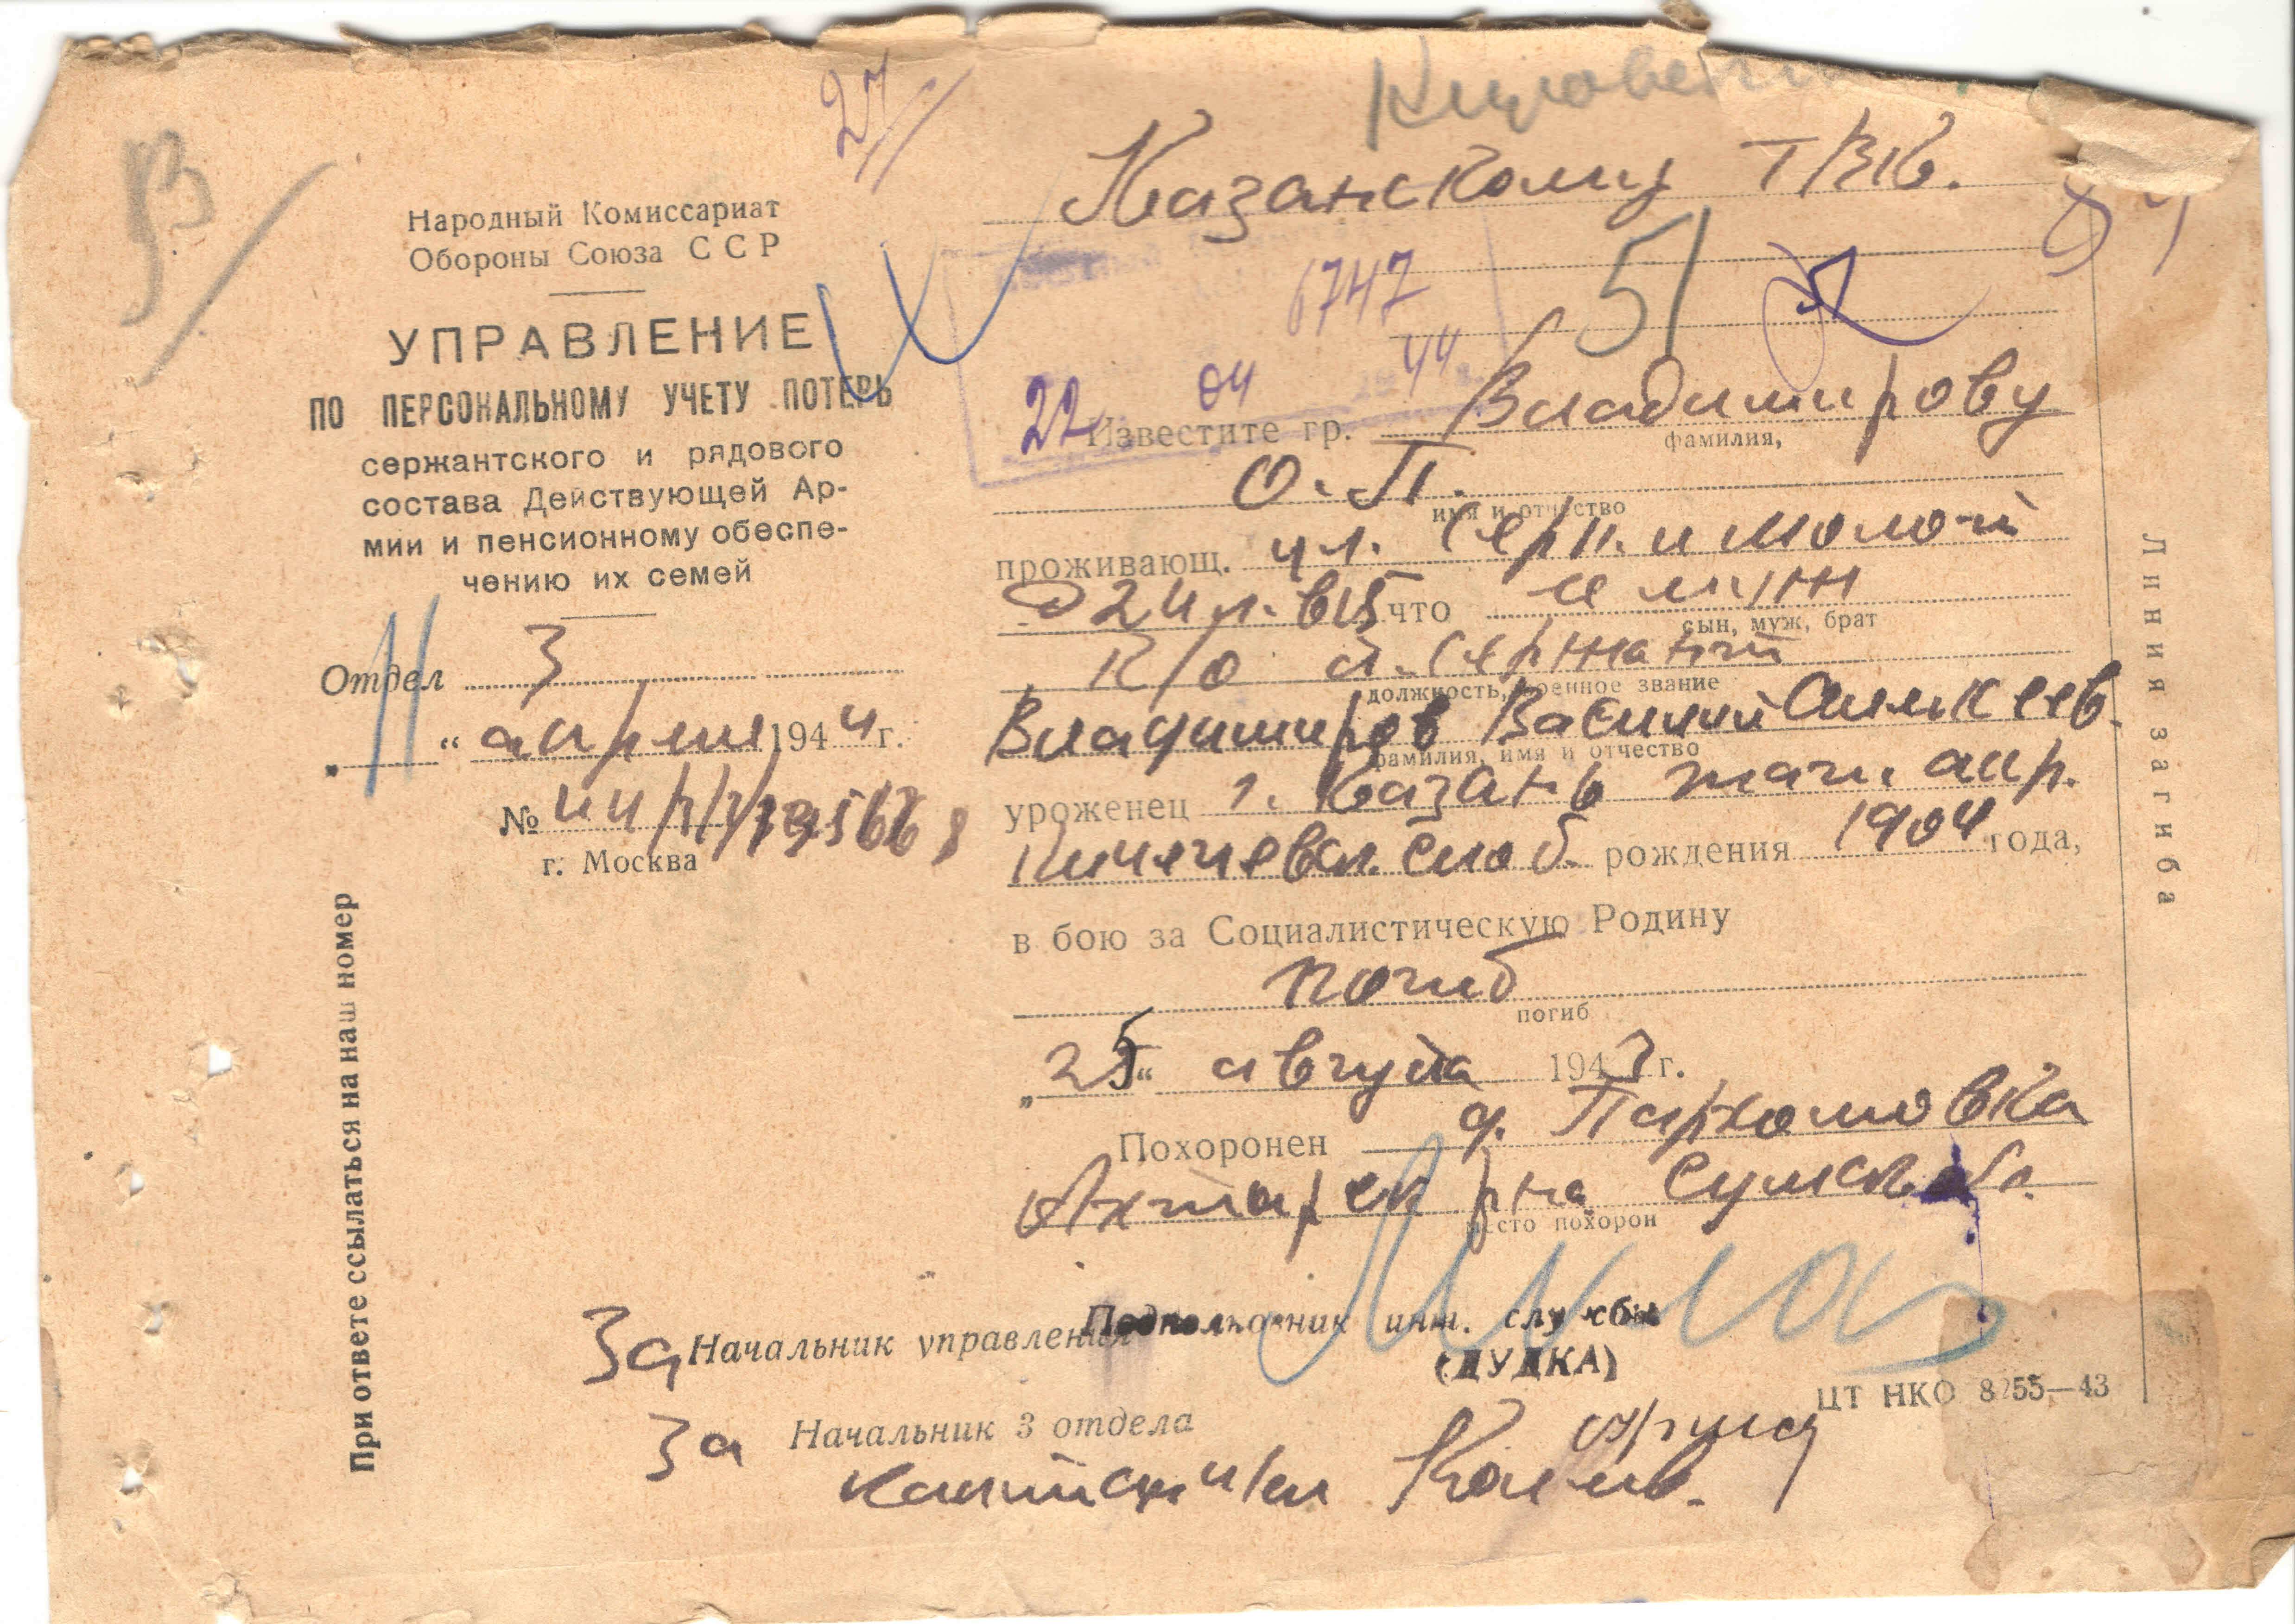 27
Народный Комиссариат
Обороны Союза ССР
УПРАВЛЕНИЕ
ПО ПЕРСОНАЛЬНОМУ УЧЕТУ ПОТЕРЬ
сержантского и рядового
состава Действующей Ар-
мии и пенсионному обеспе-
чению их семей
Отдел 3
„11“ апреля 1944 г.
№
г. Москва
При ответе ссылаться на наш номер
Казанскому ГВК.
6747
51
22 04 44
Известите гр. Владимирову
фамилия,
О. П.
имя и отчество
проживающ. ул. Серп. и Молот
что
сын, муж, брат
К/О ст. сержант
должность, военное звание
Владимиров Василий
фамилия, имя и отчество
уроженец г. Казань
слоб. рождения 1904 года,
в бою за Социалистическую Родину
погиб
погиб
„25“ августа 1943 г.
Похоронен д. Пархомовка
Ахтырск р-на Сумск обл.
место похорон
За Начальник управления Подполковник инт. службы
(ДУДКА)
ЦТ НКО 8255—43
За Начальник 3 отдела
капитан
Линия загиба